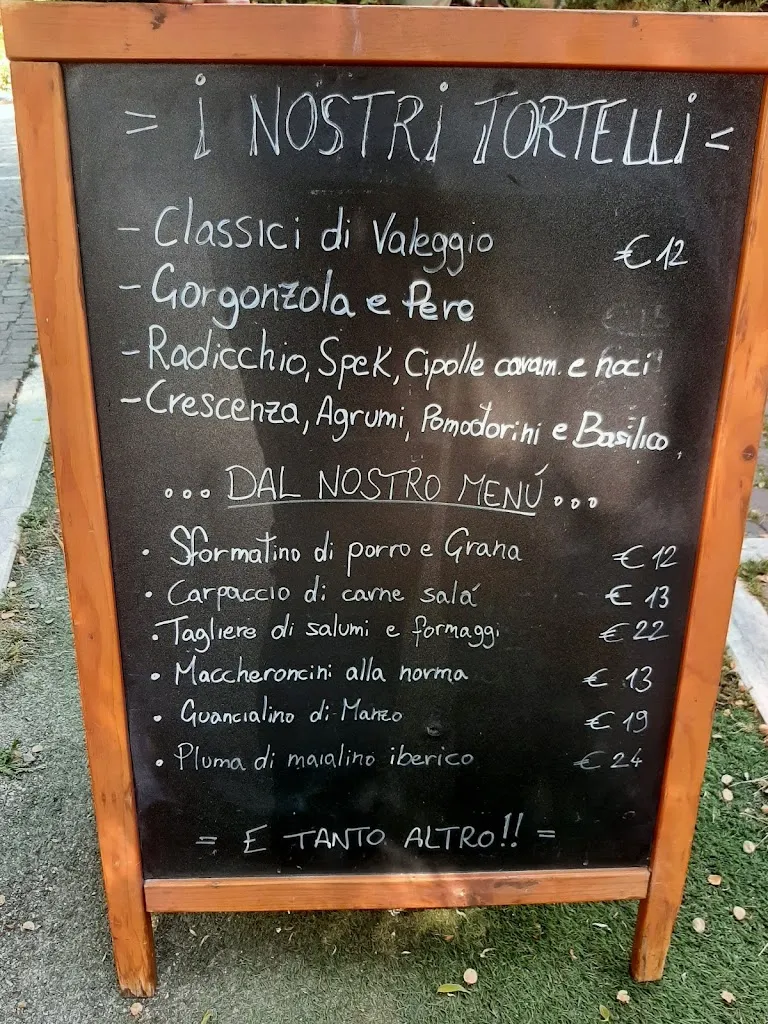 = i NOSTRi TORTELLi =
- Classici di Valeggio €12
- Gorgonzola e Pere
- Radicchio, Spek, Cipolle caram. e noci
- Crescenza, Agrumi, Pomodorini e Basilico.
... DAL NOSTRO MENÚ ...
• Sformatino di porro e Grana €12
• Carpaccio di carne salá € 13
• Tagliere di salumi e formaggi € 22
• Maccheroncini alla norma € 13
• Guancialino di Manzo € 19
• Pluma di maialino iberico € 24
= E TANTO ALTRO!! =